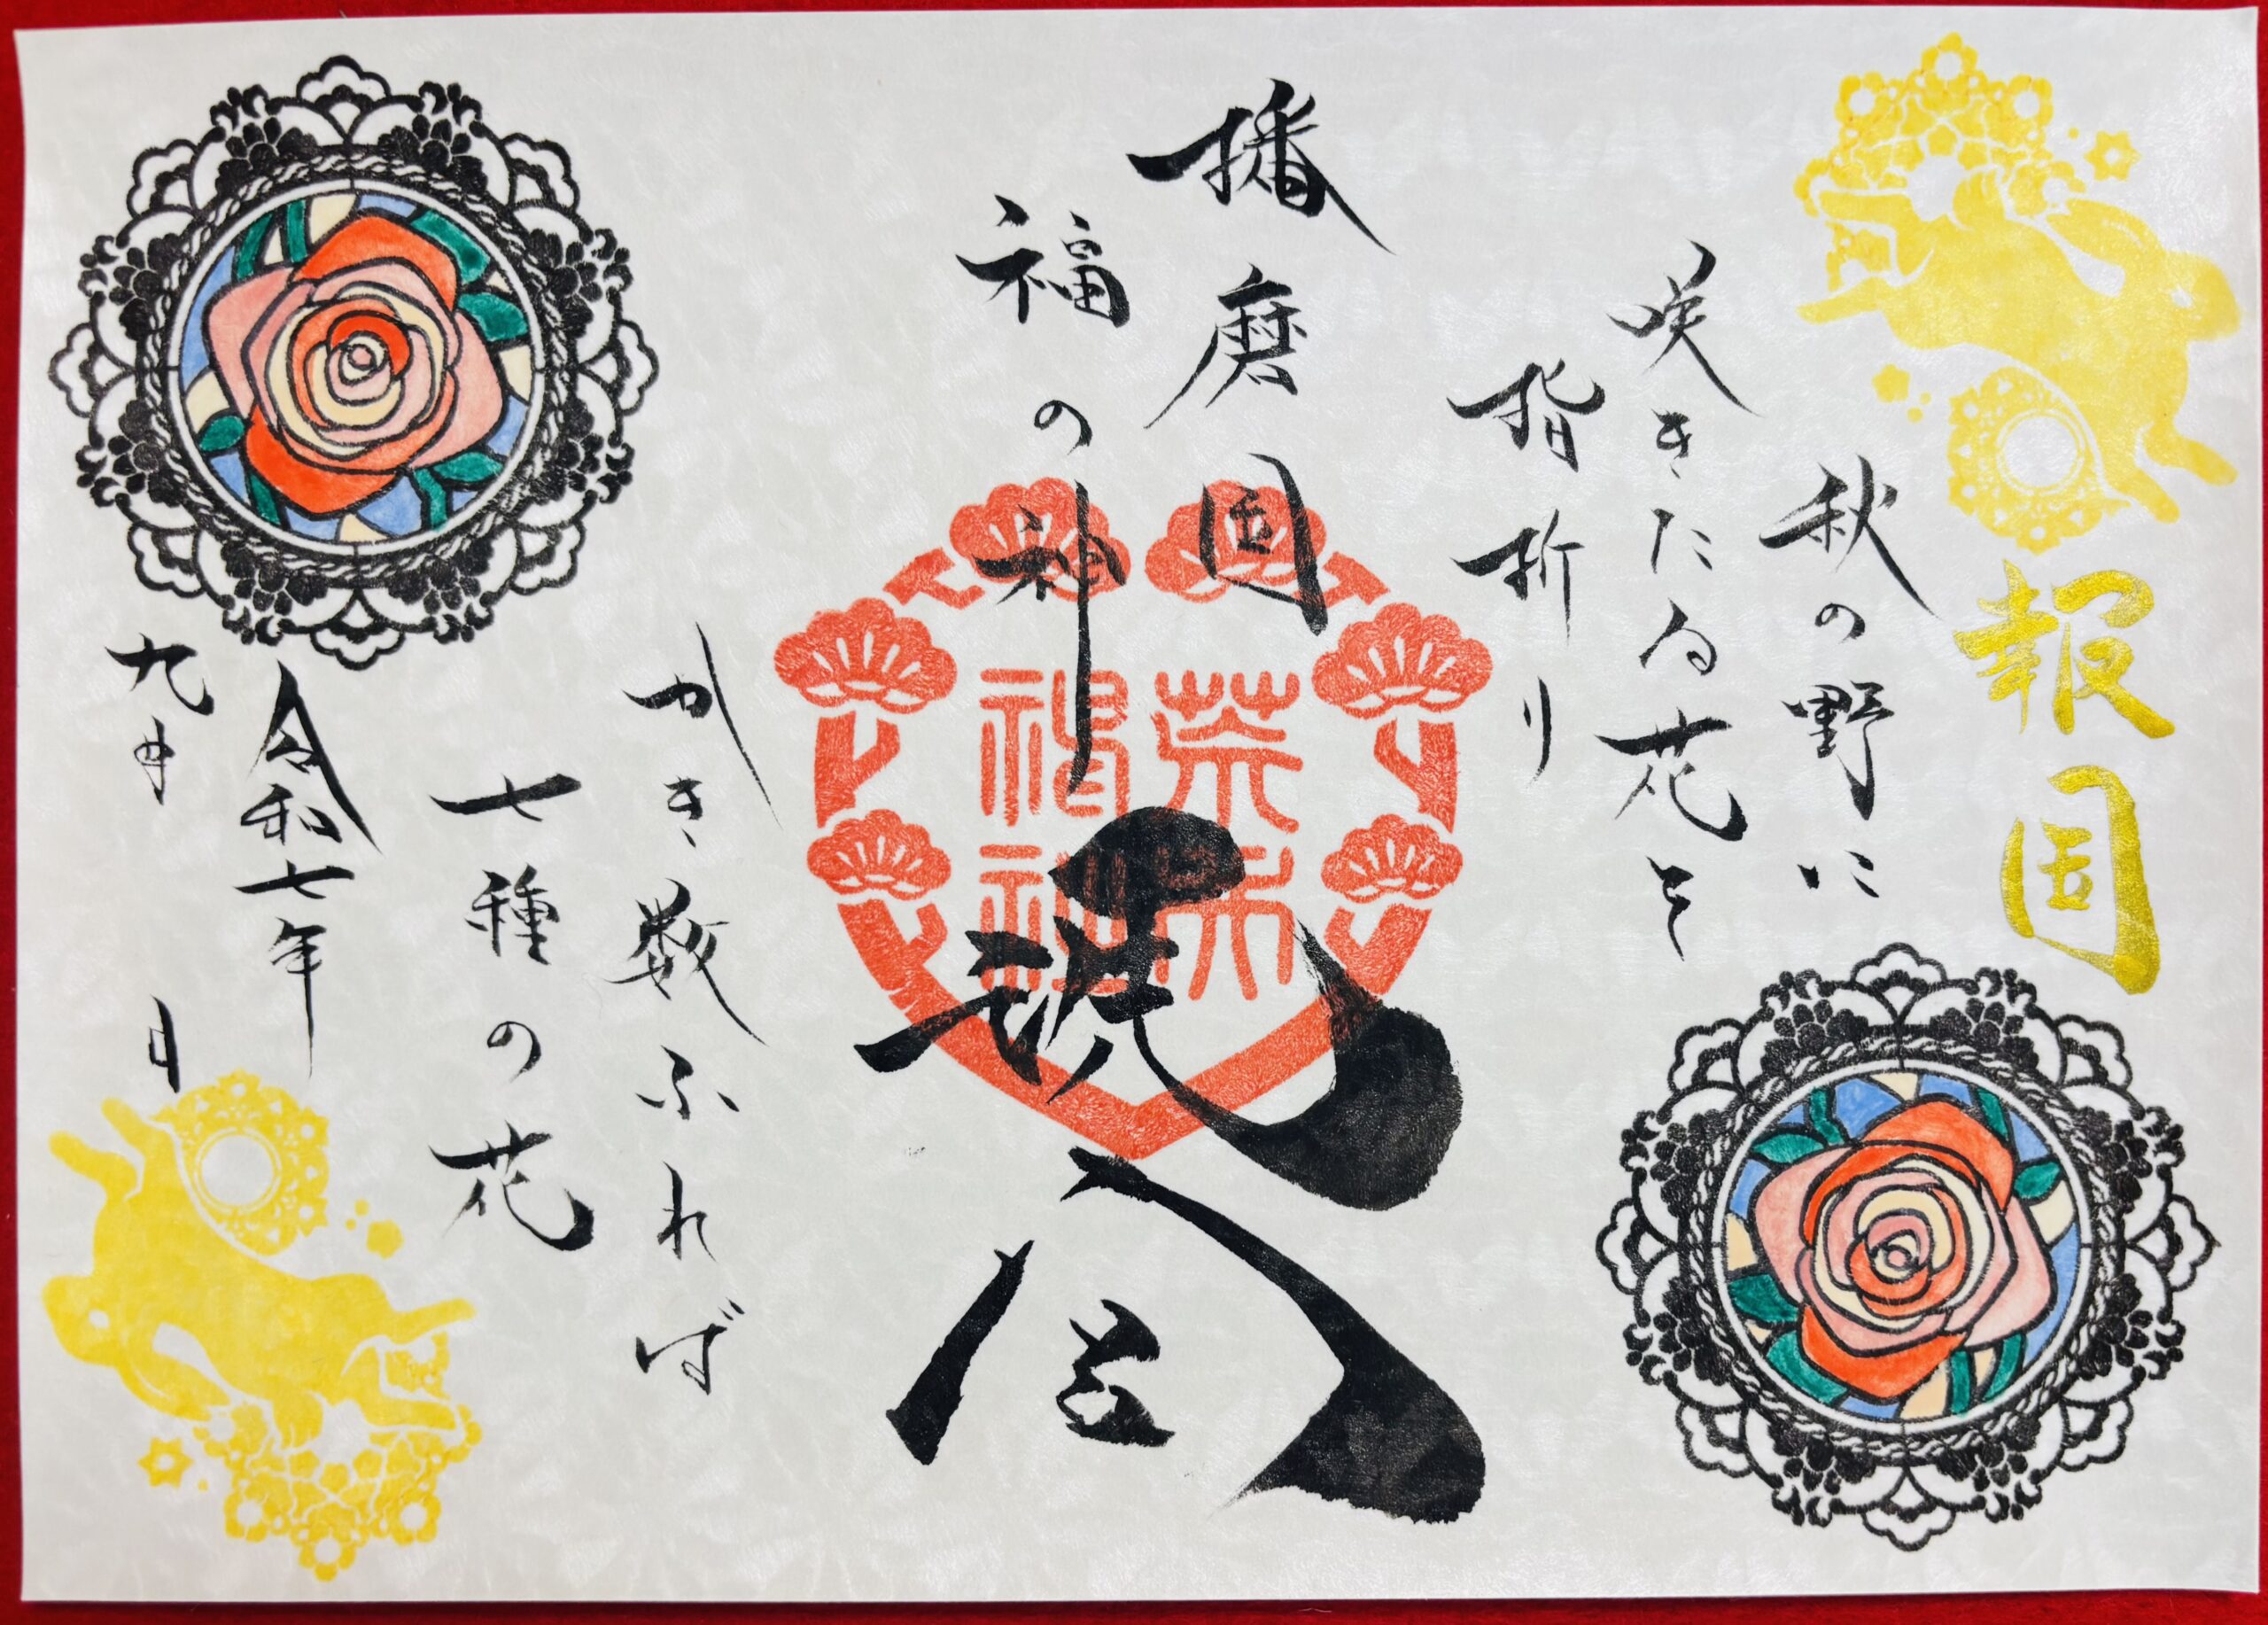 報国
秋の野に
咲きたる花を
指折り
播磨国
福の神
かき数ふれば
七種の花
令和七年
九月 日